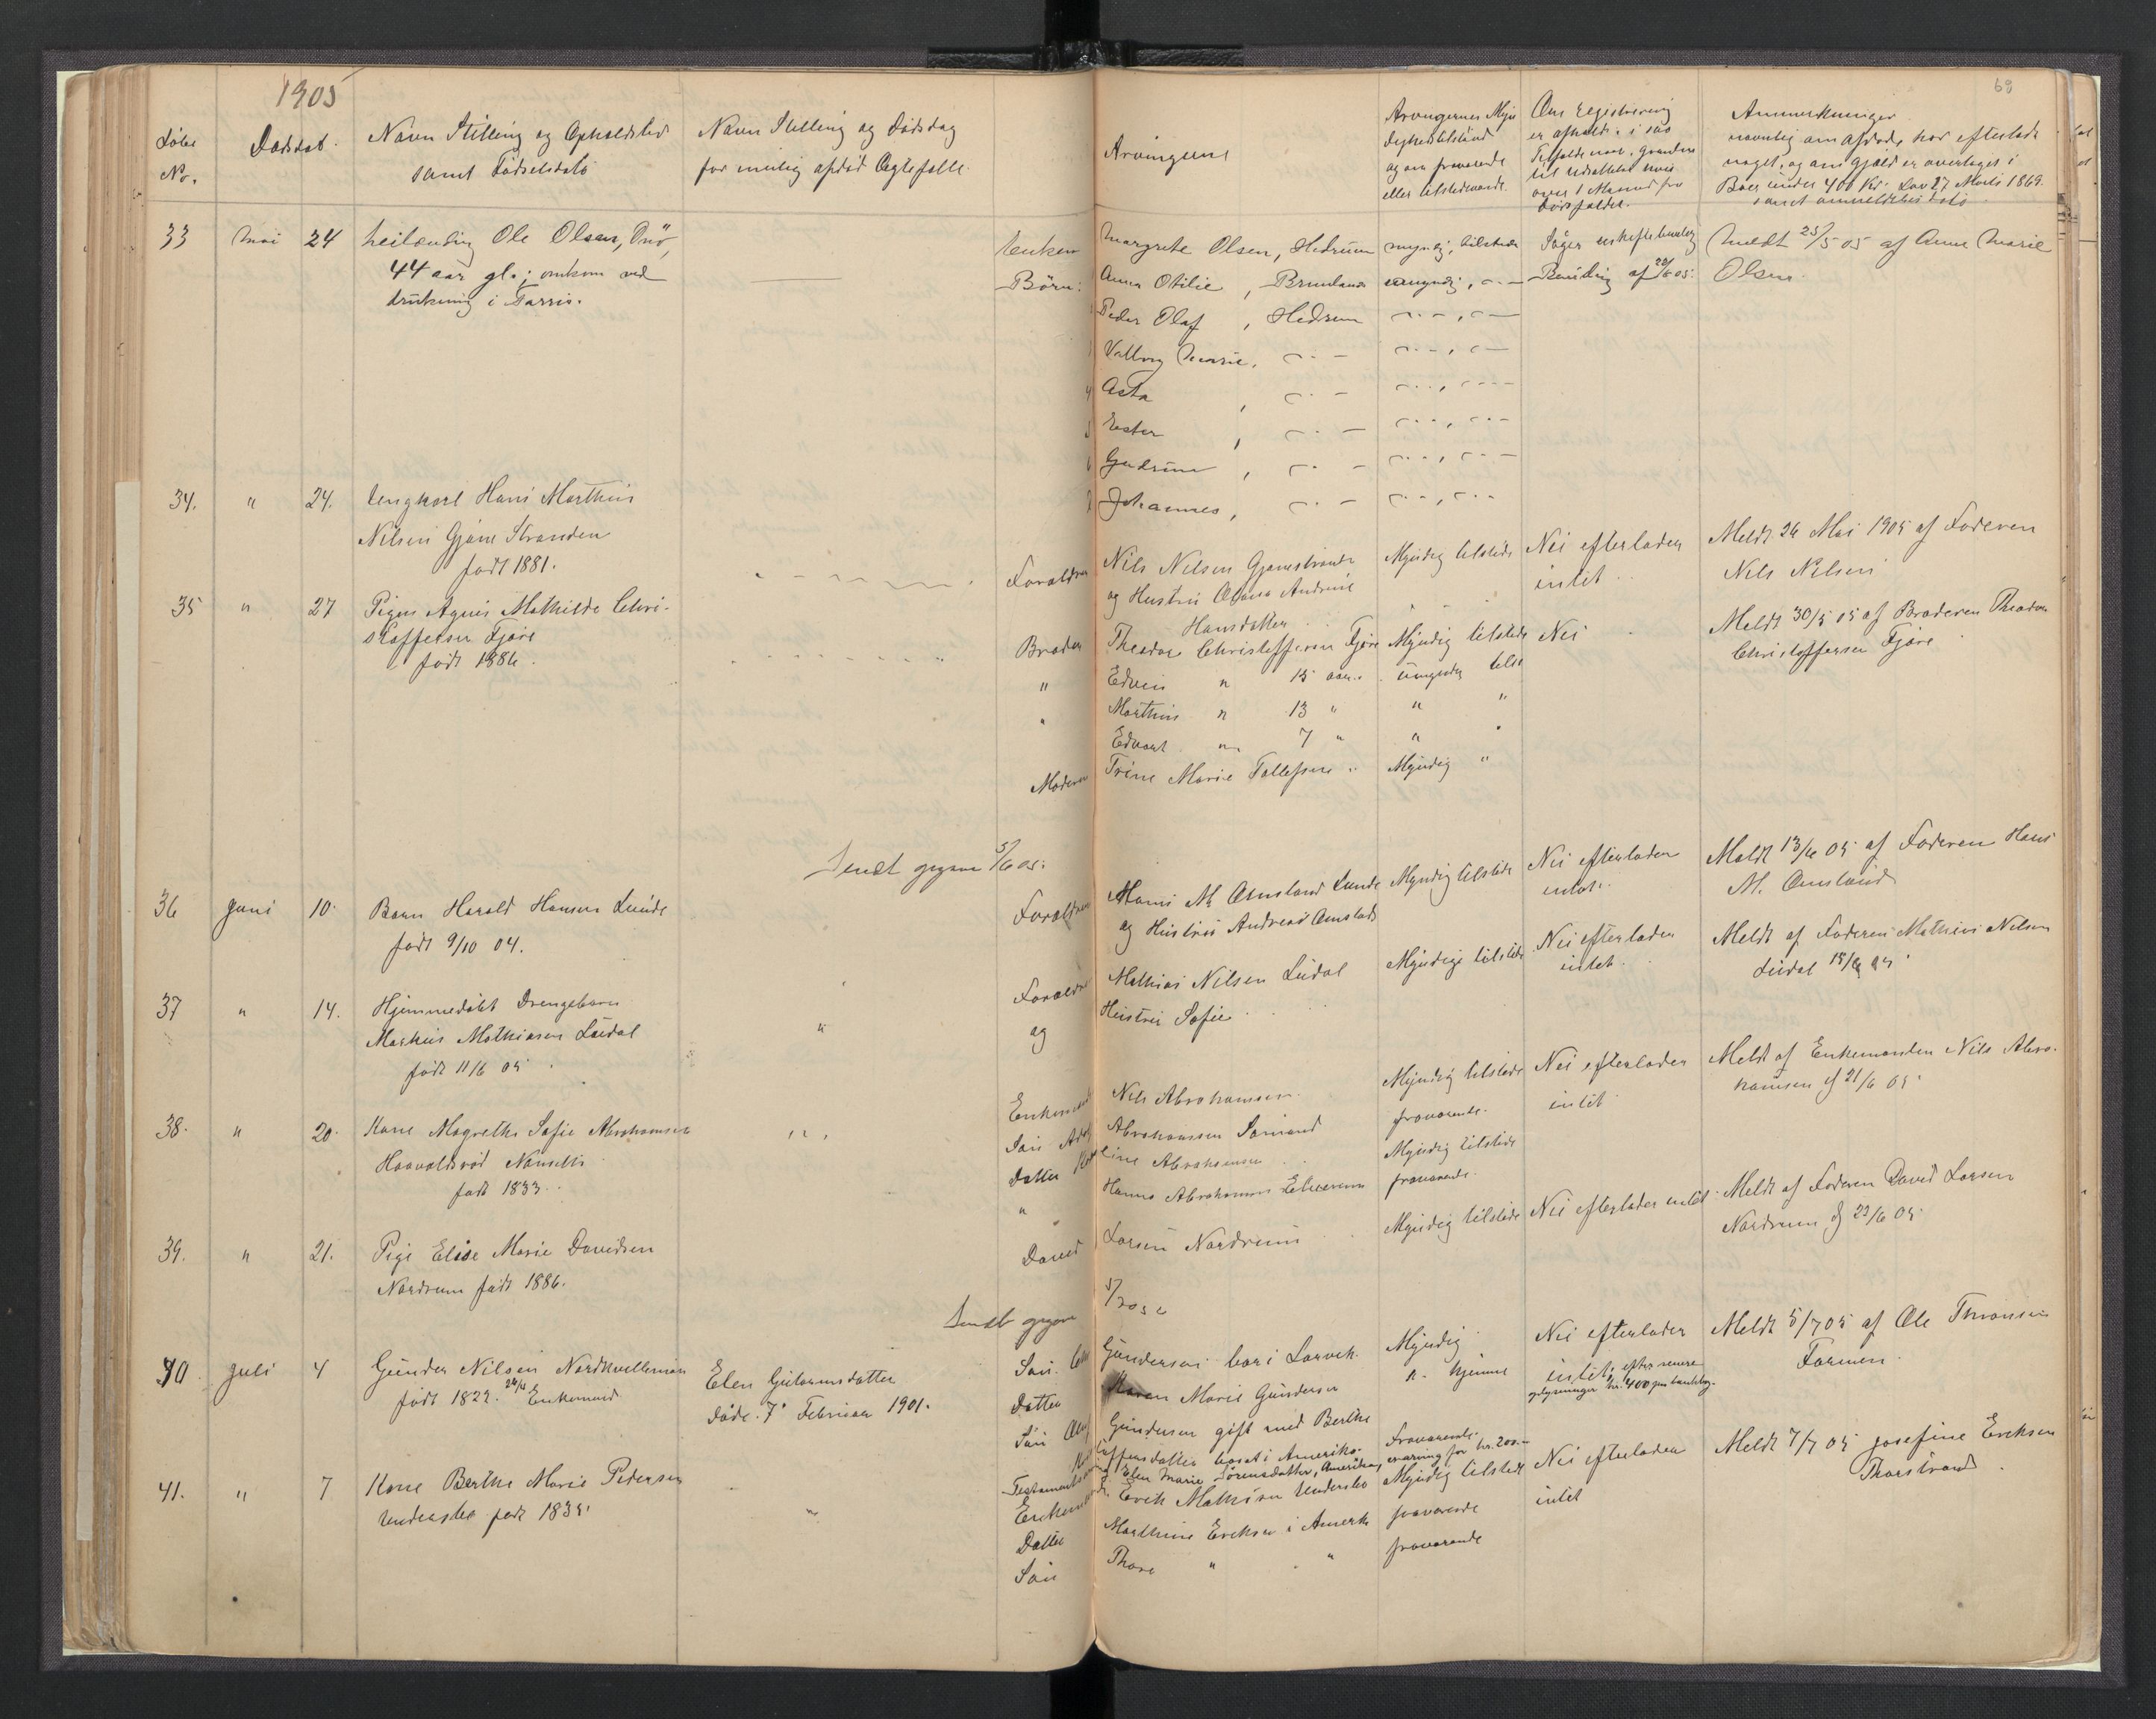 1905
68
Løbe No.
Dødsdat.
Navn Stilling og Opholdsted
samt Fødselsdato
Navn Stilling og Dødsdag
for mulig afdød Ægtefælle.
Arvingerne
Arvingernes Myn
dighedstilstand
og om fraværende
eller tilstedeværende.
Om registrering
er afholdt i saa
Tilfælde naar, grunden
til udsættelse
over 1 Maaned fra
dødsfaldet.
Anmerkninger
navnlig om afdøde har efterladt
noget, og om Gjæld er overtaget i
Boer under 400 Kr. Lov 27 Marts 1869.
samt anmeldelses dato
33 Mai 24 Leilænding Ole Olsen, Onö,
44 aar gl.; omkom ved
drukning i Farris.
Enken Margrete Olsen, Hedrum myndig, tilstede
Søger uskiftebevilling
Bevilling af 20/6 05.
Meldt 25/5 05 af Anne Marie
Olsen.
Börn: Anna Otilie, Brunlanæs umyndig, -"-
Peder Olaf, Hedrum -"-, -"-
Valborg Marie, -"- -"-, -"-
4 Asta, -"- -"-, -"-
5 Ester, -"- -"-, -"-
6 Gudrun, -"- -"-, -"-
Johannes, -"- -"-, -"-
34. " 24. Ungkarl Hans Marthin
Nilsen Gjone Stranden
født 1881.
Forældre Nils Nilsen Gjonestrande
og Hustru Olava Andrine
Hansdatter
Myndig tilstede
Nei efterlader
intet
Meldt 26 Mai 1905 af Faderen
Nils Nilsen
35 " 27 Pigen Agnes Mathilde Chri-
stoffersen Fjære
født 1886.
Broder Theodor Christoffersen Fjære Myndig tilstede Nei
Meldt 30/5 05 af Broderen Theodor
Christoffersen Fjære
" Edvin " 15 aar. umyndig tilst
" Marthin " 13 " " "
Edvart " 7 " " "
Moderen Trine Marie Tollefsen " Myndig "
Sendt opgave 5/6 05.
36 Juni 10. Barn Harald Hansen Lunde
født 9/10 04.
Forældre Hans M. Omsland Lunde
og Hustru Andrea Omsland
Myndig tilstede
Nei efterlader
intet.
Meldt 13/6 05 af Faderen Hans
M. Omsland
37 " 14. Hjemmedøbt Drengebarn
Markus Mathiasen Liudal
født 11/6 05
"
Forældre Mathias Nilsen Liudal
og Hustru Sofie
Myndige tilstede
Nei efterlader
intet.
Meldt af Faderen Mathias Nilsen
Liudal 15/6 05
38. " 20. Kone Magrethe Sofie Abrahamsen
Haavaldsrød Nanseth
født 1833.
Enkemand Nils Abrahamsen Myndig tilstede
Søn Adolf Abrahamsen Sømand fraværende.
Datter Karoline Abrahamsen Myndig tilstede
" Hanna Abrahamsen fraværende.
Nei efterlader
intet
Meldt af Enkemanden Nils Abra-
hamsen d 21/6 05.
39. " 21. Pige Elise Marie Davidsen
Nordrum født 1886.
David Larsen Nordrum
Myndig tilstede
Nei efterlader intet
Meldt af Faderen David Larsen
Nordrum d 22/6 05.
Sendt opgave 5/7 05
40 Juli 4 Gunder Nilsen Nordkvelle
født 1822. Enkemand
Elen Guttormsdatter
døde 7 Februar 1901.
Søn. Ole Gundersen bor i Larvik
Datter Karen Marie Gundersen
Søn Gundersen gift med Berthe
datter bosat i Amerika.
Myndig
" hjemme
Fraværende
Nei efterlader
intet, efter senere
oplysninger kr. 400 paa bankbog.
Meldt 5/7 05 af Ole Thronsen
Farmen
Testament Elen Marie Sørensdatter, Amerika, for kr. 200.-
41. " 7 Kone Berthe Marie Pedersen
Undersbo født 1835.
Enkemand Erik Mathisen Undersbo Myndig tilstede
Datter Marthine Eriksen i Amerika fraværende
Søn Thore " " fraværende
Nei efterlader
intet
Meldt 7/7 05 Josefine Eriksen
Thorstrand